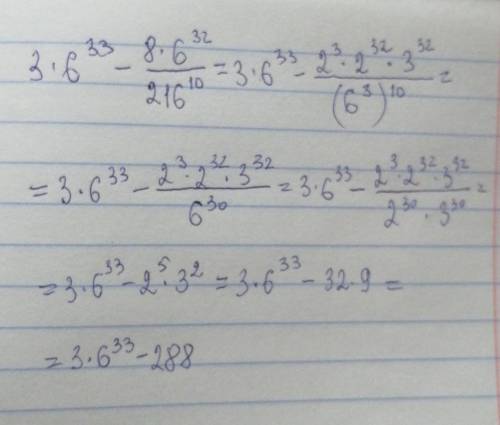 3·6^33 - (8·6^32)/(216^10) = 3·6^33 - (2^3·2^32·3^32)/((6^3)^10) =
= 3·6^33 - (2^3·2^32·3^32)/(6^30) = 3·6^33 - (2^3·2^32·3^32)/(2^30·3^30) =
= 3·6^33 - 2^5·3^2 = 3·6^33 - 32·9 =
= 3·6^33 - 288